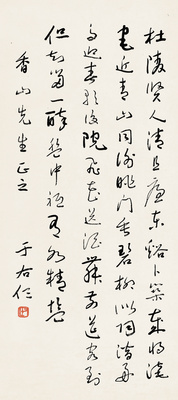 杜陵賢人清且廉東谿卜築歲將淹
宅近青山同謝朓門垂碧柳似陶潛好
鳥迎春歌後院飛花送酒舞前簷客到
但知留一醉盤中祗有水精鹽
香山先生正之
于右任